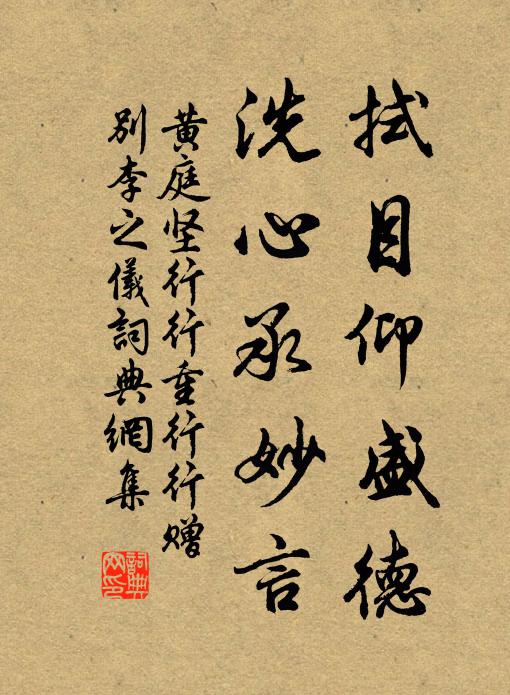 拭目仰盛德
洗心承妙言
黄庭坚行行重行行赠
别李之儀詞典網集
詞典网印